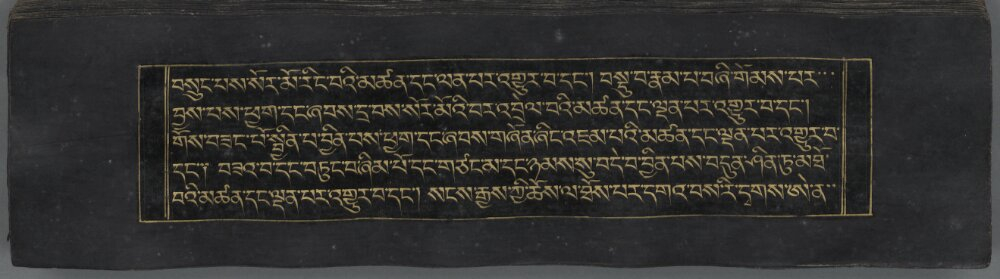 བསྲུང་པས་སོར་མོ་རིང་བའི་མཚན་དང་ལན་པར་འགྱུར་བ་དང་། བསྡུ་བ་རྣམ་པ་བཞི་གོམས་པར་
བྱས་པས་ཕྱག་དང་ཞབས་དྲ་བས་སོར་མོའི་བར་འབྲེལ་བའི་མཚན་དང་ལྡན་པར་འགྱུར་བ་དང་།
གོས་བཟང་པོ་སྦྱིན་པ་བྱིན་པས་ཕྱག་དང་ཞབས་གཞོན་ཞིང་འཇམ་པའི་མཚན་དང་ལྡན་པར་འགྱུར་བ་
དང་། བཟའ་བ་དང་བཏུང་བ་ཞིམ་པོ་དང་གཙང་མ་དང་ཉམས་སུ་བདེ་བ་བྱིན་པས་བདུན་ཤིན་ཏུ་མཐོ་
བའི་མཚན་དང་ལྡན་པར་འགྱུར་བ་དང་། སངས་རྒྱས་ཀྱི་ཆོས་ལ་ཐོས་པར་དགའ་བས་རི་དྭགས་ཨེ་ན་